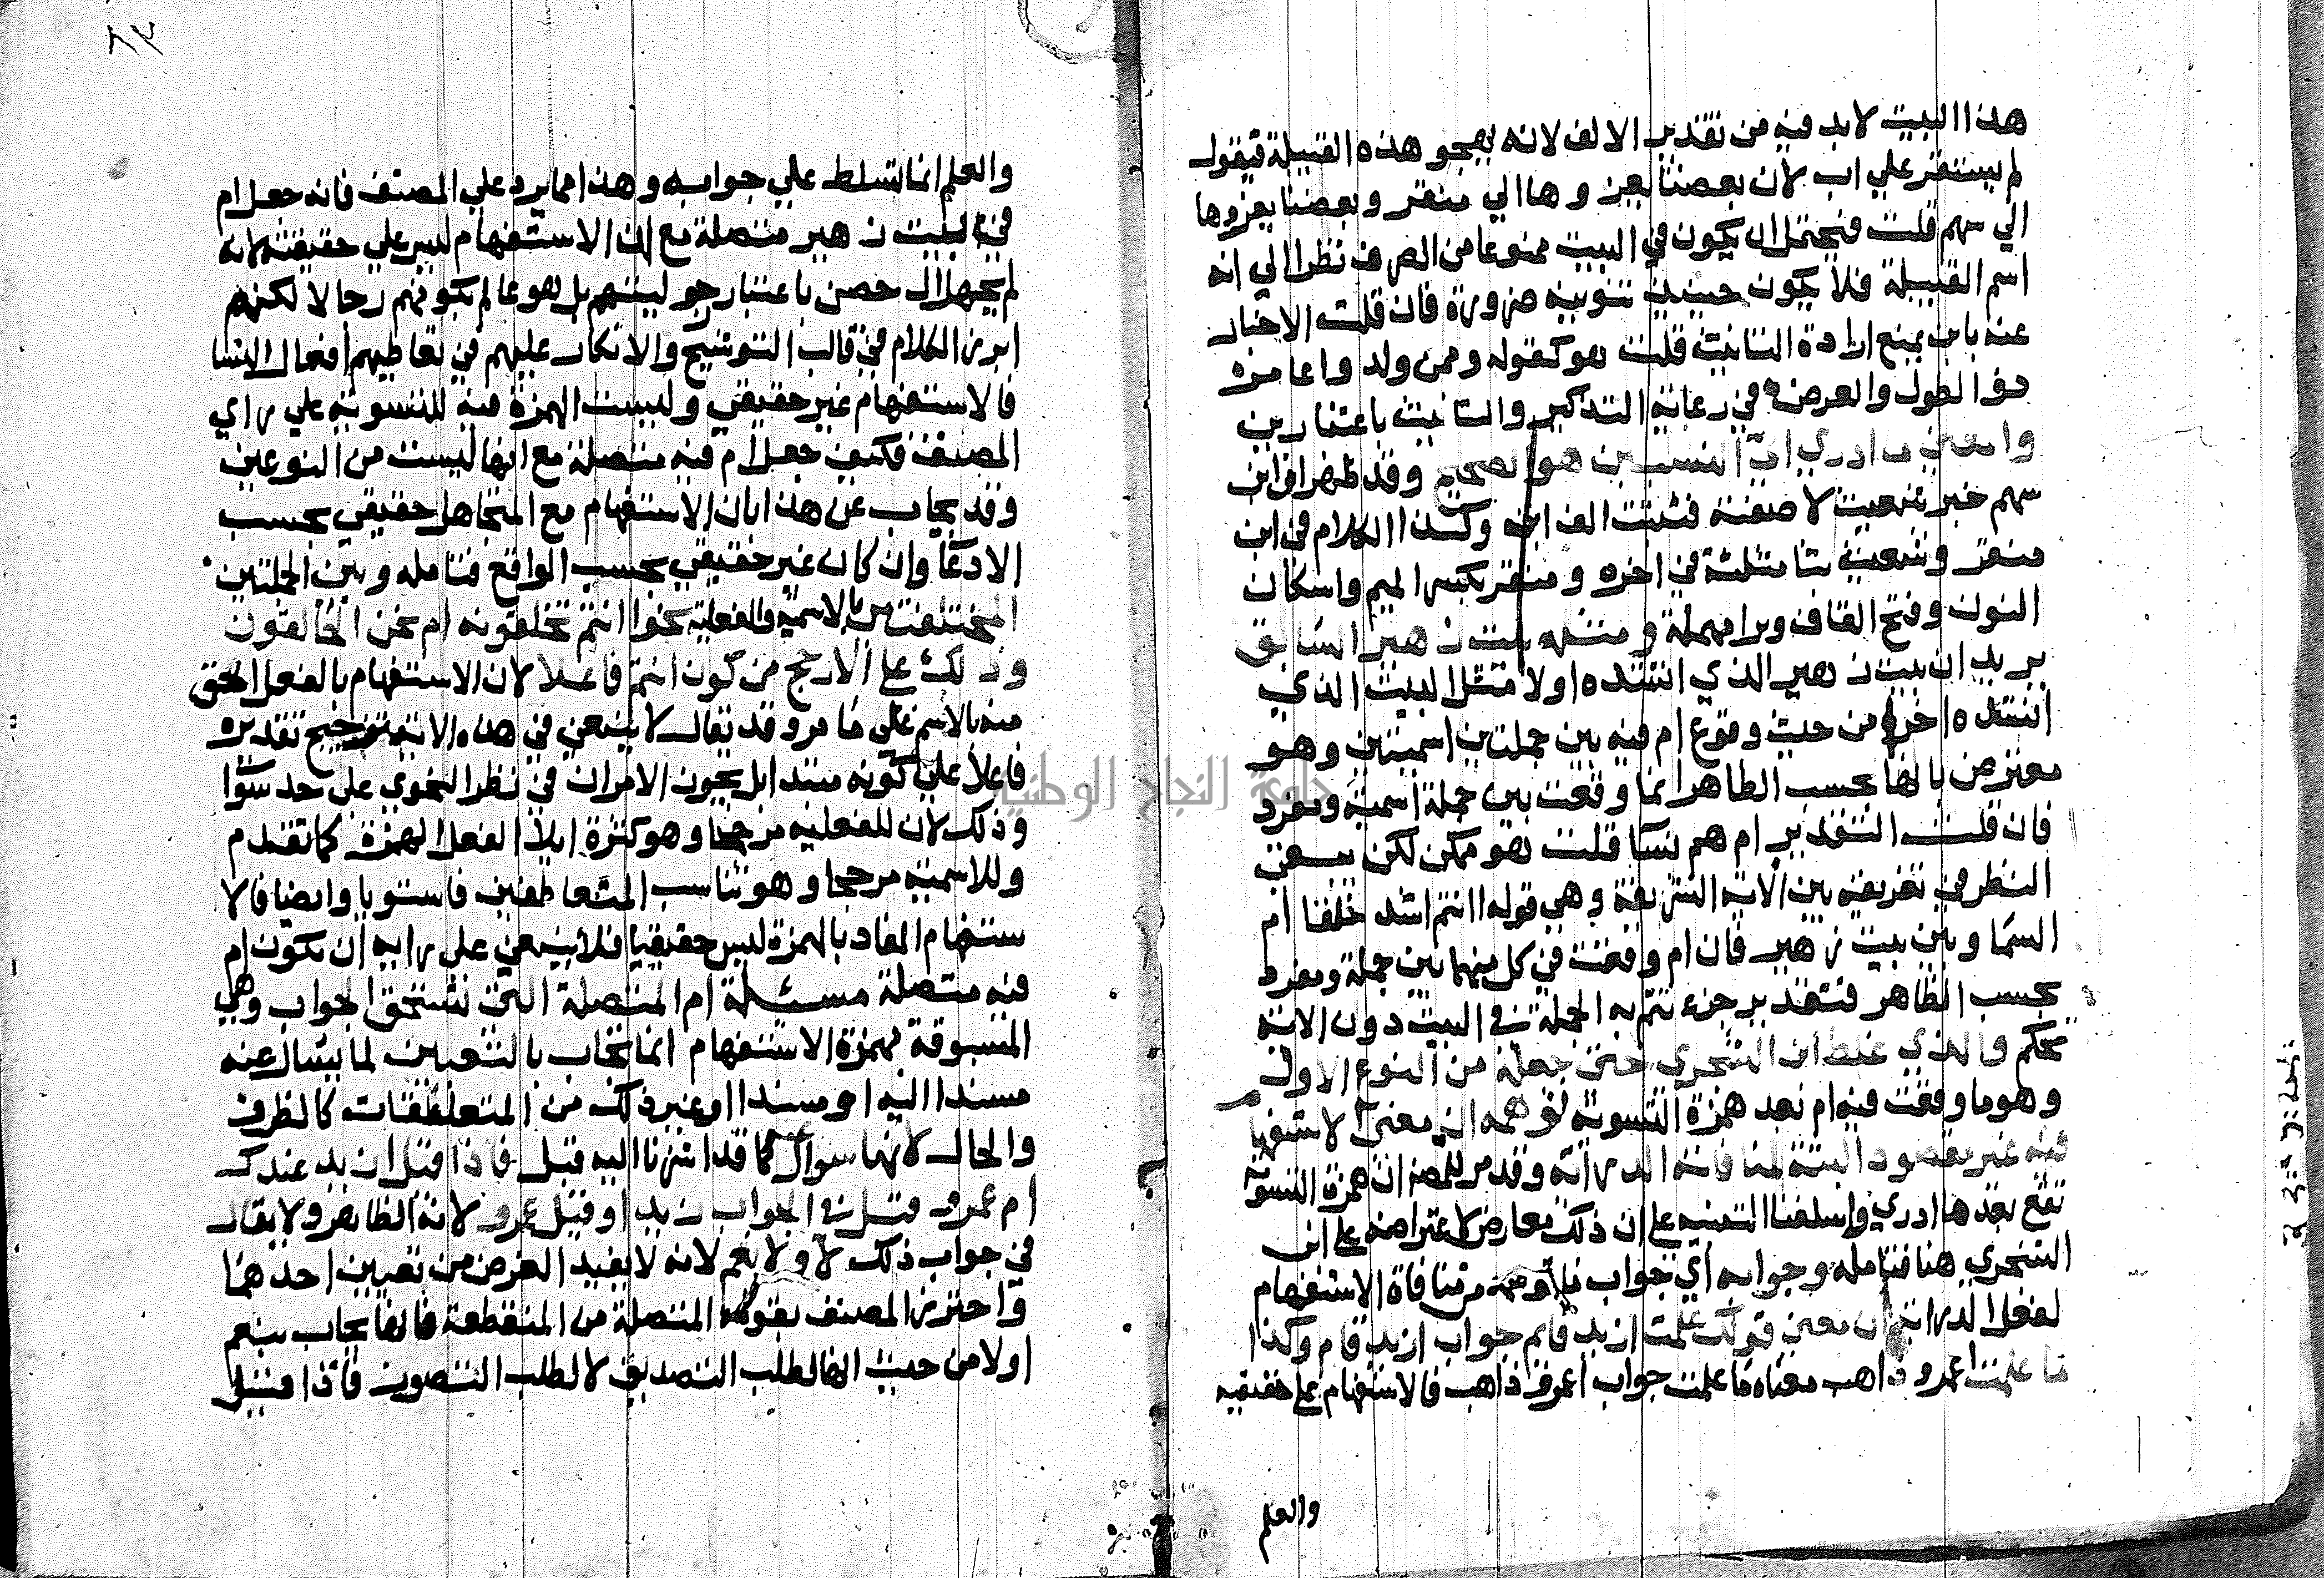 هذا البيت لابد فيه من تقدير الالف لانه يهجو هذه القبيلة فيقول
لم يستقر علي اب لان بعضنا يعزوها الي منقر وبعضنا يعزوها
الي سهم قلت فيحتمل ان يكون في البيت ممنوعا من الصرف نظرا الي انه
اسم القبيلة فلا يكون حينيذ تنوينه ضرورة فان قلت الاخبار
عنه بابن يمنع ارادة التانيث قلت هو كقوله وممن ولد واعامر
ذوا الطول والعرض في رعاية التذكير والتانيث باعتبارين
والمعني ما ادري اي النسبين هو الصحيح وقد ظهر ان ابن
سهم خبر شعيث لا صفته فثبتت الف ابن وكذا الكلام في ابن
منقر وشعيث بثا مثلثة في اخره ومنقر بكسر الميم واسكان
النون وفتح القاف وبرا مهملة ومثله بيت زهير السابق
يريد ان بيت زهير الذي انشده اولا مثل البيت الذي
انشده اخرا من حيث وقوع ام فيه بين جملتين اسميتين وهو
معترض بانها بحسب الظاهر انما وقعت بين جملة اسمية ومفرد
فان قلت التقدير ام هم نسآ قلت هو ممكن لكن يبقي
النظر في تفريقه بين الاية الشريفة وهي قوله اانتم اشد خلقا ام
السما وبين بيت زهير فان ام وقعت في كل منهما بين جملة ومفرد
بحسب الظاهر فتقدير جزء تتم به الجملة في البيت دون الاية
تحكم والذي غلط ابن الشجري حتي جعله من النوع الاول
وهو ما وقعت فيه ام بعد همزة التسوية توهمه ان معني الاستفها
فيه غير مقصود البتة لمنافاته الدراية وقد مر للمص ان همزة التسوية
تقع بعد ما ادري واسلفنا التنبيه علي ان ذلك معارض لاعتراضه علي ابن
الشجري هنا فتامله وجوابه اي جواب ما توهمه من منافاة الاستفهام
لفعل الدراية ان معني قولك علمت ازيد قايم جواب ازيد قام وكذا
ما علمت اعمرو ذاهب معناه ما علمت جواب اعمرو ذاهب فالاستفهام علي حقيقته
والعلم
٨٣
والعلم انما تسلط علي جوابه وهذا مما يرد علي المصنف فانه جعل ام
في بيت زهير متصلة مع ان الاستفهام ليس علي حقيقته لانه
لم يجهل ال حصن باعتبار رجوليتهم بل هو عالم بكونهم رجالا لكنه
ابرز الكلام في قالب التوبيخ والانكار عليهم في تعاطيهم افعال النسا
فالاستفهام غير حقيقي وليست الهمزة فيه للتسوية علي راي
المصنف فكيف جعل ام فيه متصلة مع انها ليست من النوعين
وقد يجاب عن هذا بان الاستفهام مع التجاهل حقيقي بحسب
الادعا وان كان غير حقيقي بحسب الواقع فتامله وبين الجملتين
المختلفتين بالاسمية والفعلية نحو اانتم تخلقونه ام نحن الخالقون
وذلك علي الارجح من كون انتم فاعلا لان الاستفهام بالفعل احق
منه بالاسم علي ما مر وقد يقال لا ينبغي في هذه الاية ترجيح تقديره
فاعلا علي كونه مبتدا بل يجوز الامران في نظر النحوي علي حد سوا
وذلك لان للفعلية مرجحا وهو كثرة ايلا الفعل الهمزة كما تقدم
وللاسمية مرجحا وهو تناسب المتعاطفين فاستويا وايضا فالا
ستفهام المفاد بالهمزة ليس حقيقيا فلا ينبغي علي رايه ان يكون ام
فيه متصلة مسئلة ام المتصلة التي تستحق الجواب وهي
المسبوقة بهمزة الاستفهام انما تجاب بالتعيين لما يسال عنه
مسندا اليه او مسندا او غير ذلك من المتعلقات كالظرف
والحال لانها سوال كما قد اشرنا اليه قبل فاذا قيل ازيد عندك
ام عمرو قيل في الجواب زيد او قيل عمرو لانه الظاهر ولا يقال
في جواب ذلك لا ولا نعم لانه لا يفيد الغرض من تعيين احدهما
واحترز المصنف بقوله المتصلة من المنقطعة فانها يجاب بنعم
او لا من حيث انها لطلب التصديق لا لطلب التصور فاذا قيل
جامعة النجاح الوطنية